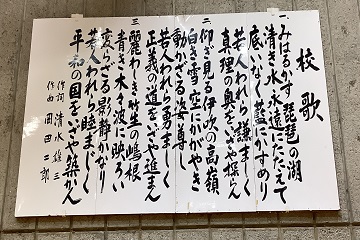 校歌
一 みはるかす 琵琶の湖
清き水 永遠にたたえて
底いなく 藍にかすめり
若人われら 謙ましく
真理の奥を いざや探らん
二 仰ぎ見る 伊吹の高嶺
白き雪 空にかがやき
動かざる 姿ぞ尊し
若人われら 勇ましく
正義の道を いざや進まん
三 麗わしき 竹生の嶋根
青き木々 波に映ろい
変らざる 影静かなり
若人われら 睦まじく
平和の国を いざや築かん
作詞 清水雄三
作曲 岡田二郎